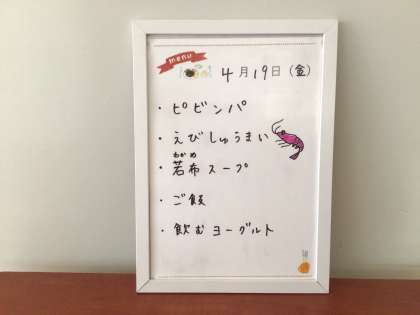 menu
4月19日(金)
・ビビンバ
・えびしゅうまい
わかめ
・若布スープ
・ご飯
・飲むヨーグルト